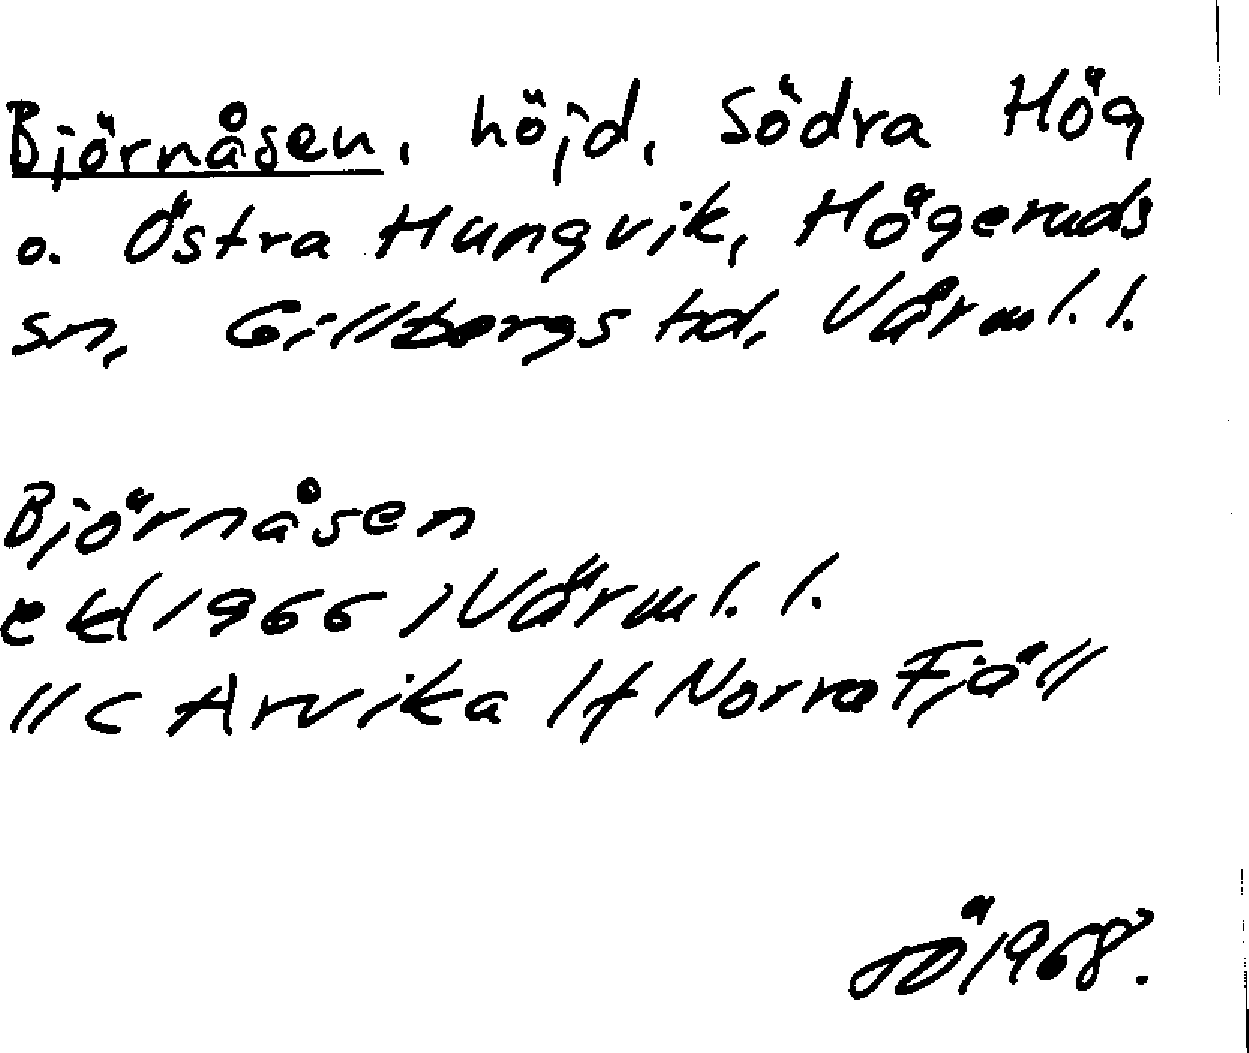 Björnåsen, höjd, Södra Hög
o. Östra Hungvik, Högeruds
sn, Gillbergs hd, Värml. l.
Björnåsen
ekl 1966, Värml. l.
11 c Arvika 1f Norra Fjöll
OÖ 1968.